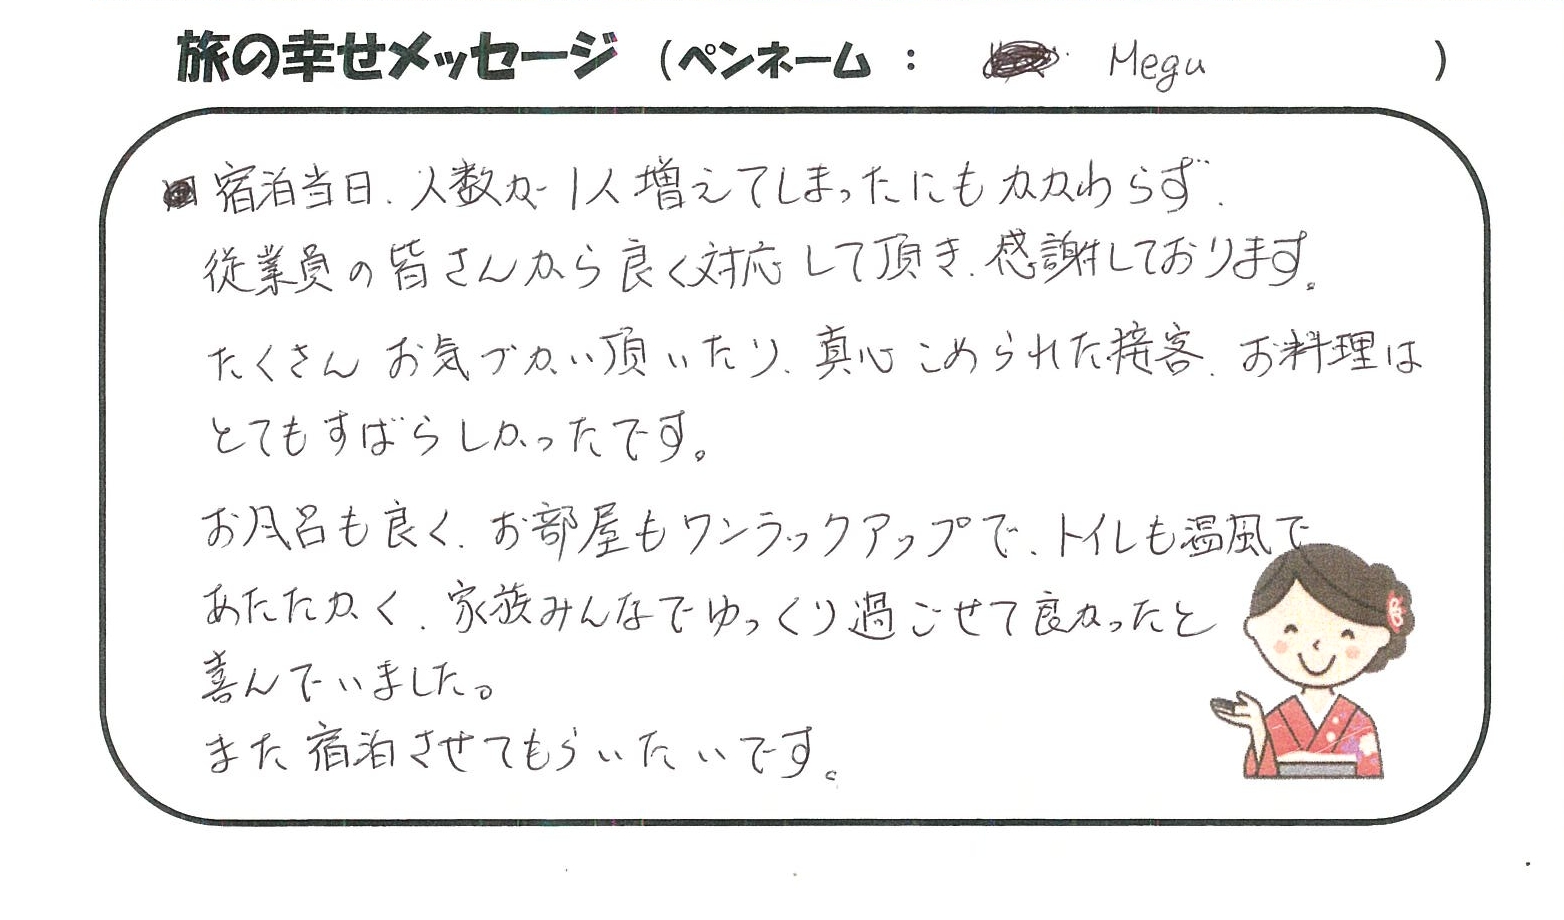 旅の幸せメッセージ（ペンネーム： Megu ）
宿泊当日、人数が1人増えてしまったにもかかわらず、
従業員の皆さんから良く対応して頂き、感謝しております。
たくさんお気づかい頂いたり、真心こめられた接客、お料理は
とてもすばらしかったです。
お風呂も良く、お部屋もワンラックアップで、トイレも温風で
あたたかく、家族みんなでゆっくり過ごせて良かったと
喜んでいました。
また宿泊させてもらいたいです。